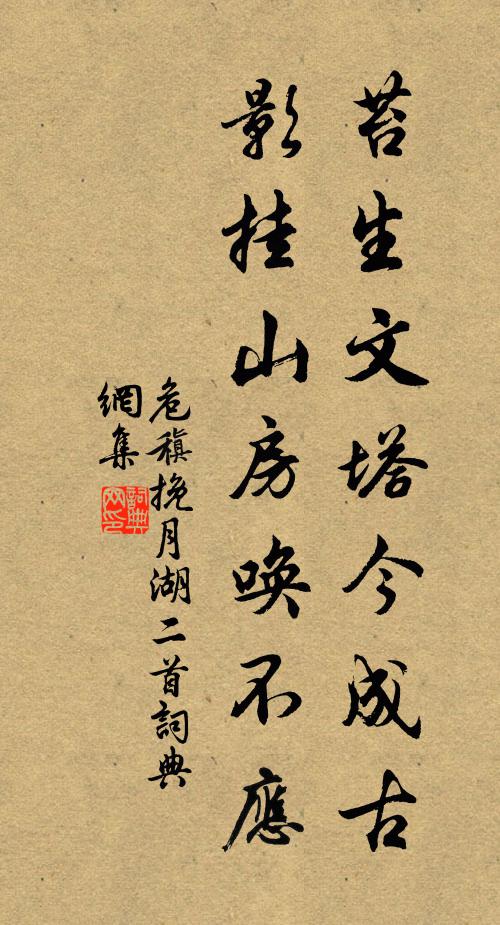 苔生文塔今成古
影挂山房喚不應
危稹挽月湖二首詞典
網集
詞典
网印